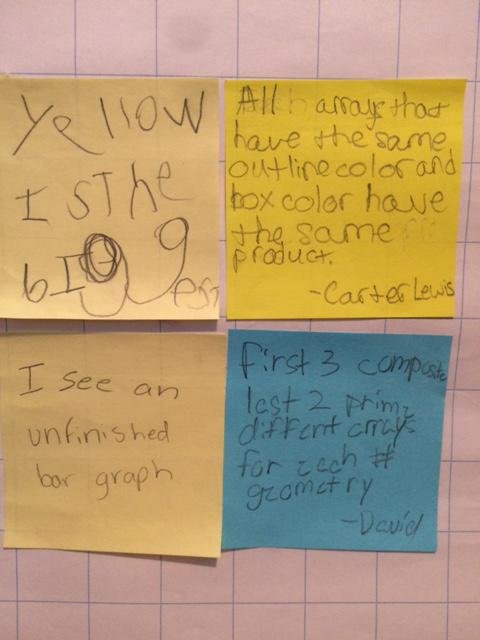 Yellow
Is The
bIggest
All arrays that
have the same
outline color and
box color have
the same
product.
-Carter Lewis
I see an
unfinished
bar graph
first 3 composite
last 2 prime
diffent arrays
for each #
geometry
-David